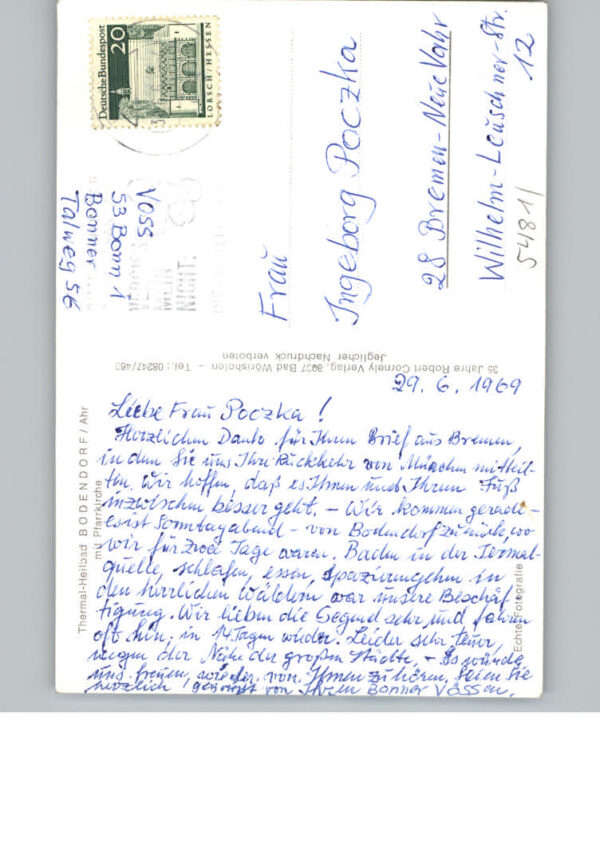 Deutsche Bundespost
20
LORSCH/HESSEN
Voss
53 Bonn 1
Bonner
Talweg 56
NICHT.
Frau
Ingeborg Poczka
28 Bremen-Neue Vahr
Wilhelm-Leuschner-Str.
12
5481/
35 Jahre Robert Cornely Verlag, 8937 Bad Wörishofen – Tel.: 08247/463
Jeglicher Nachdruck verboten
Thermal-Heilbad BODENDORF/Ahr
mit Pfarrkirche
Echte Fotografie
29. 6. 1969
Liebe Frau Poczka!
Herzlichen Dank für Ihren Brief aus Bremen,
in dem Sie uns Ihre Rückkehr von München mitteil-
ten. Wir hoffen, daß es Ihnen und Ihrem Fuß
inzwischen besser geht. – Wir kommen gerade –
es ist Sonntagabend – von Bodendorf zurück, wo
wir für zwei Tage waren. Baden in der Termal-
quelle, schlafen, essen, spazierengehen in
den herrlichen Wäldern war unsere Beschäf-
tigung. Wir lieben die Gegend sehr und fahren
oft hin, in 14 Tagen wieder. Leider sehr teuer,
wegen der Nähe der großen Städte. – Es würde
uns freuen, wieder von Ihnen zu hören. Seien Sie
herzlich gegrüßt von Ihren Bonner Vossen.